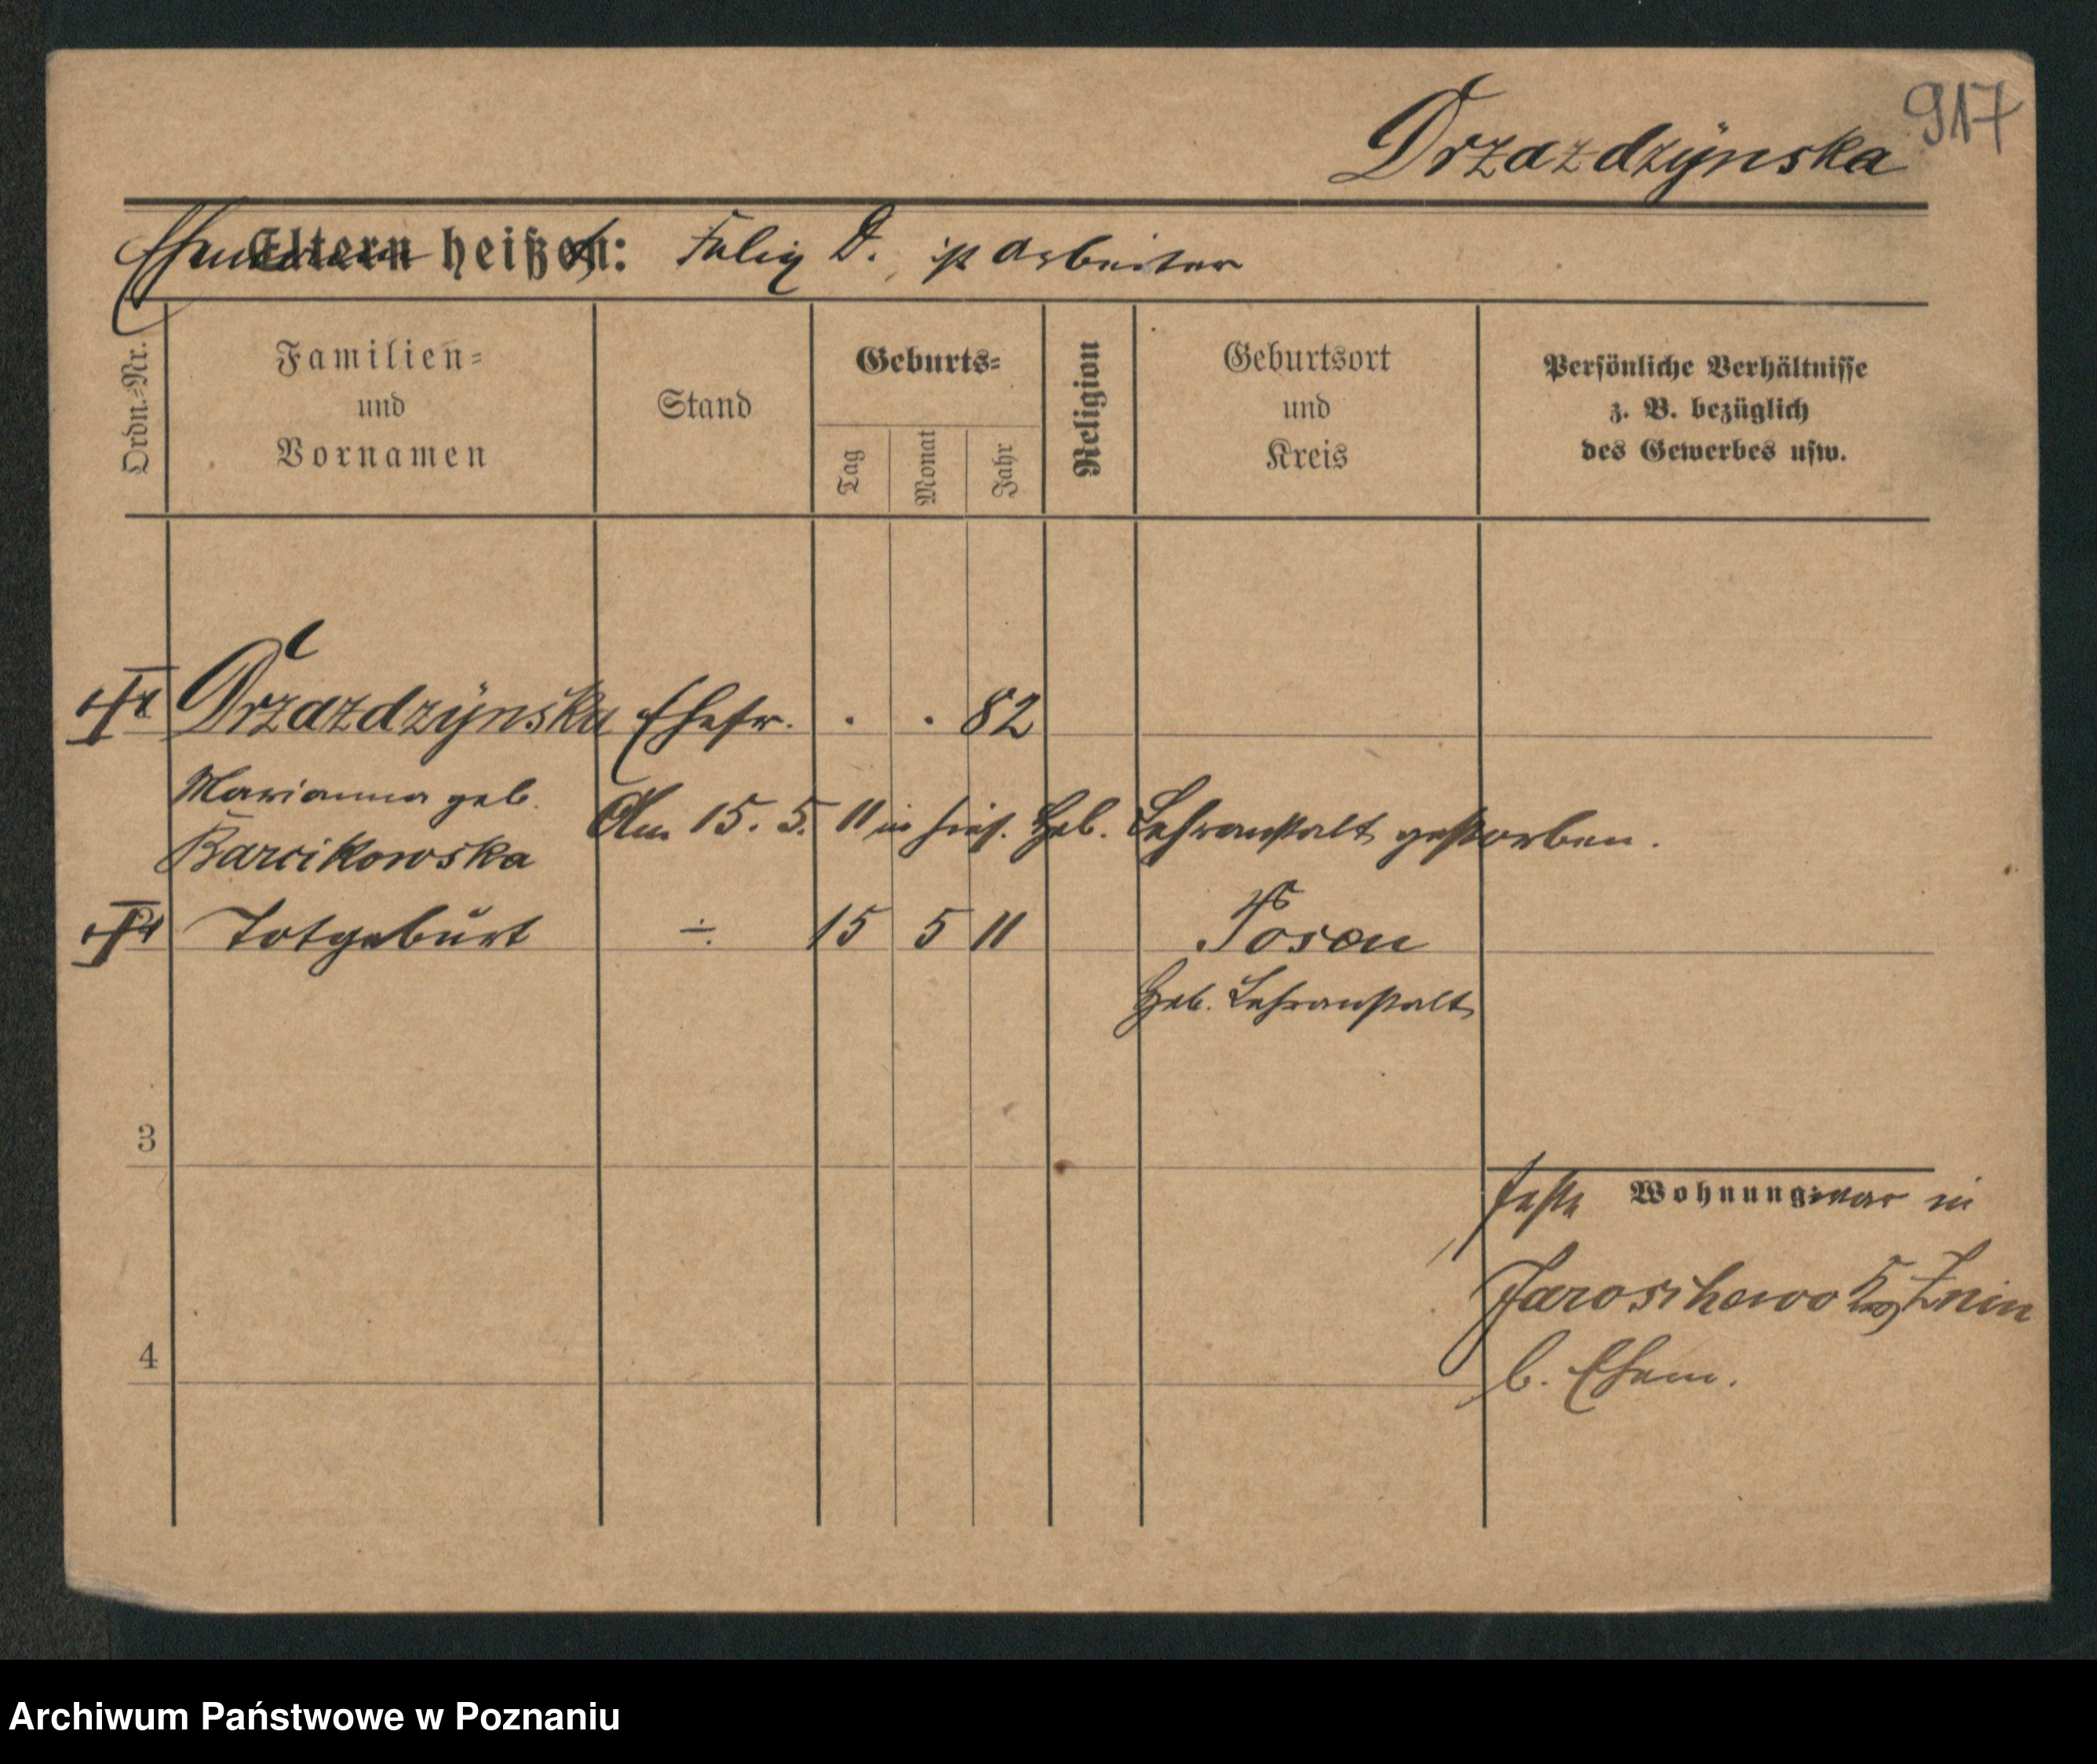 917
Drzazdzÿnska
Ehemann heißt: Felix D., ist Arbeiter
Ordn.=Nr.
Familien=
und
Vornamen
Stand
Geburts=
Tag
Monat
Jahr
Religion
Geburtsort
und
Kreis
Persönliche Verhältnisse
z. B. bezüglich
des Gewerbes usw.
Drzazdzÿnska Ehefr. . . 82
Marianna geb.
Barcikowska
Am 15. 5. 11 in hies. Heb. Lehranstalt gestorben.
Totgeburt ÷ 15 5 11 Posen
Heb. Lehranstalt
3
feste Wohnung war in
Znin
4
b. Ehem.
Archiwum Państwowe w Poznaniu